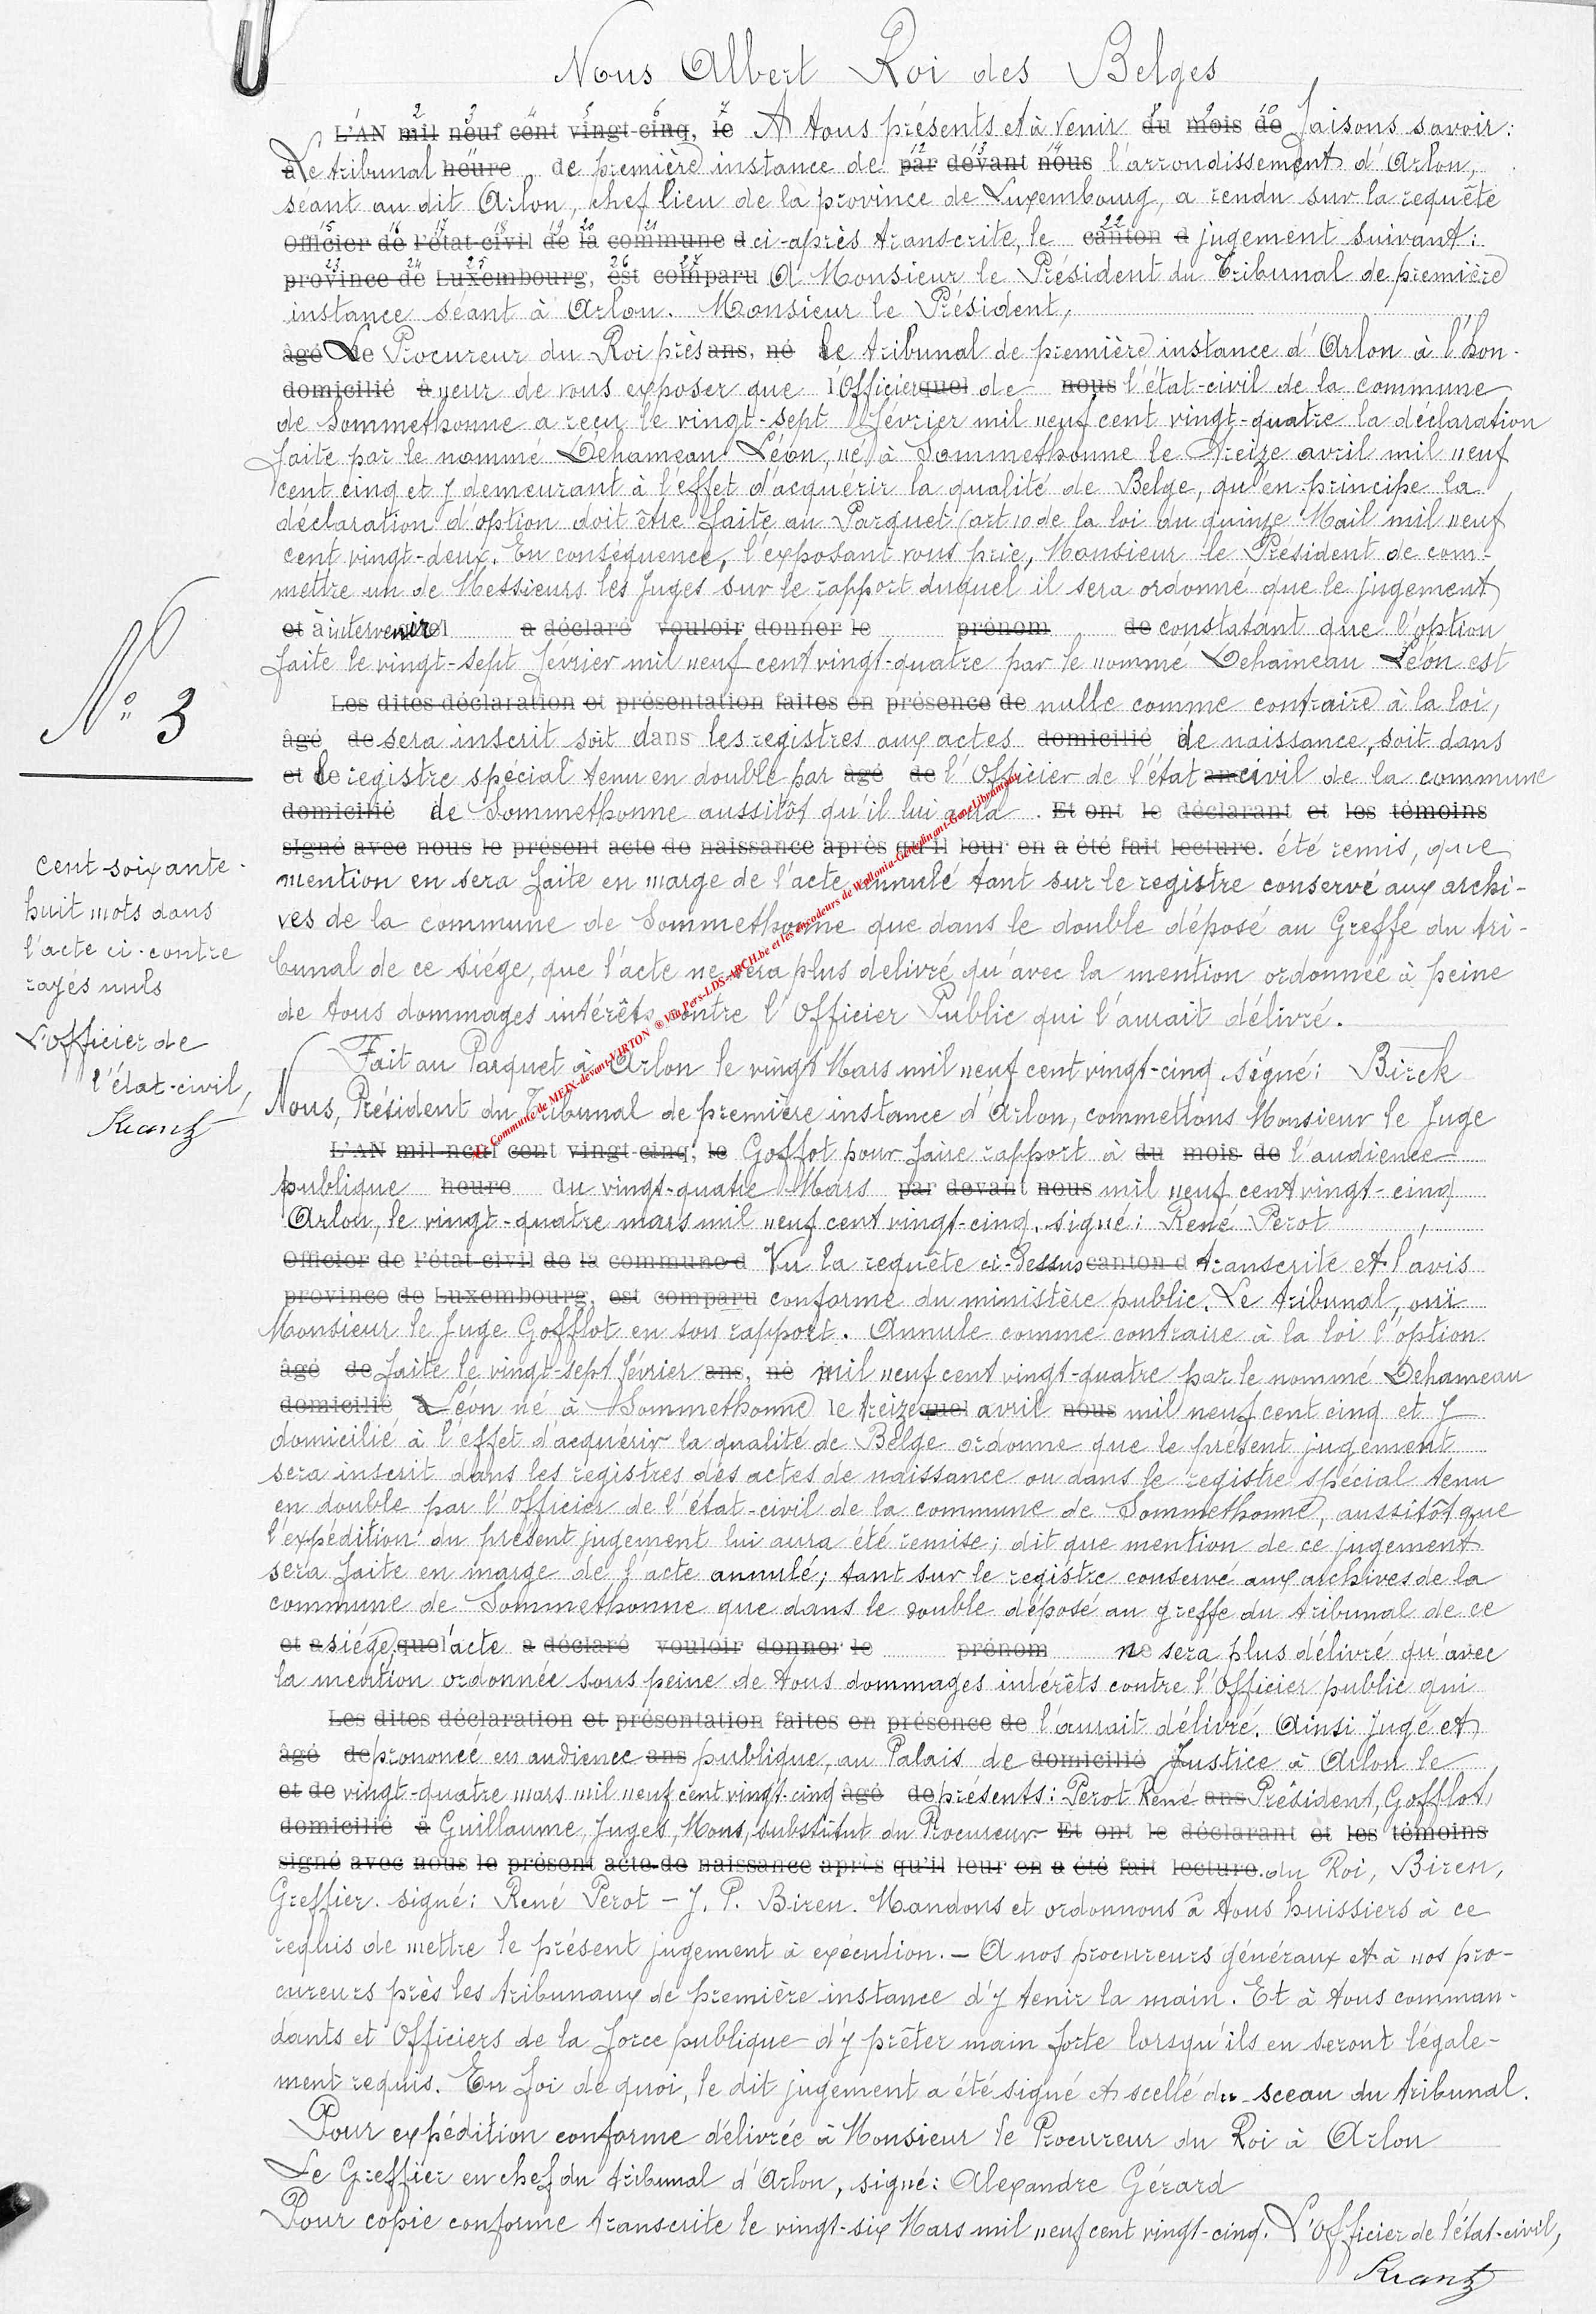 Nous Albert Roi des Belges
L'AN mil neuf cent vingt-cinq, le A tous présents et à venir du mois de faisons savoir:
Le tribunal heure de première instance de par devant nous l'arrondissement d'Arlon,
séant au dit Arlon, chef lieu de la province de Luxembourg, a rendu sur la requête
Officier de l'état-civil de la commune d ci-après transcrite, le canton d jugement suivant:
province de Luxembourg, est comparu A Monsieur le Président du Tribunal de première
instance séant à Arlon. Monsieur le Président,
âgé de Le Procureur du Roi près ans, né le tribunal de première instance d'Arlon à l'hon-
domicilié à neur de vous exposer que l'Officier quel de nous l'état-civil de la commune
de Sommethonne a reçu le vingt-sept février mil neuf cent vingt-quatre la déclaration
faite par le nommé Dehameau Léon, né à Sommethonne le treize avril mil neuf
cent cinq et y demeurant à l'effet d'acquérir la qualité de Belge, qu'en principe la
déclaration d'option doit être faite au Parquet (art 10 de la loi du quinze Mail mil neuf
cent vingt-deux. En conséquence, l'exposant vous prie, Monsieur le Président de com-
mettre un de Messieurs les Juges sur le rapport duquel il sera ordonné que le jugement
et à intervenir a déclaré vouloir donner le prénom de constatant que l'option
faite le vingt-sept février mil neuf cent vingt-quatre par le nommé Dehameau Léon est
Les dites déclaration et présentation faites en présence de nulle comme contraire à la loi,
âgé de sera inscrit soit dans les registres aux actes domicilié de naissance, soit dans
et de le registre spécial tenu en double par âgé de l'Officier de l'état ans civil de la commune
domicilié de Sommethonne aussitôt qu'il lui aura . Et ont le déclarant et les témoins
signé avec nous le présent acte de naissance après qu'il leur en a été fait lecture. été remis, que
mention en sera faite en marge de l'acte annulé tant sur le registre conservé aux archi-
ves de la commune de Sommethonne que dans le double déposé au Greffe du tri-
bunal de ce siége, que l'acte ne sera plus delivré qu'avec la mention ordonnée à peine
de tous dommages intérêts contre l'Officier Public qui l'aurait délivré.
Fait au Parquet à Arlon le vingt Mars mil neuf cent vingt-cinq. signé: Birck
Nous, Président du Tribunal de première instance d'Arlon, commettons Monsieur le Juge
L'AN mil neuf cent vingt-cinq, le Goffot pour faire rapport à du mois de l'audience
publique heure du vingt-quatre Mars par devant nous mil neuf cent vingt-cinq
Arlon, le vingt-quatre mars mil neuf cent vingt-cinq. signé: René Perot
Officier de l'état-civil de la commune d Vu la requête ci-Dessus canton d transcrite et l'avis
province de Luxembourg, est comparu conforme du ministère public. Le tribunal, ouï
Monsieur le Juge Gofflot en son rapport. Annule comme contraire à la loi l'option
âgé de faite le vingt-sept février ans, né mil neuf cent vingt-quatre par le nommé Dehameau
domicilié à Léon né à Sommethonne le treize quel avril nous mil neuf cent cinq et y
domicilié à l'effet d'acquérir la qualité de Belge ordonne que le présent jugement
sera inscrit dans les registres des actes de naissance ou dans le registre spécial tenu
en double par l'Officier de l'état-civil de la commune de Sommethonne, aussitôt que
l'expédition du présent jugement lui aura été remise; dit que mention de ce jugement
sera faite en marge de l'acte annulé; tant sur le registre conservé aux archives de la
commune de Sommethonne que dans le double déposé au greffe du tribunal de ce
et a siége, que l'acte a déclaré vouloir donner le prénom ne sera plus délivré qu'avec
la mention ordonnée sous peine de tous dommages intérêts contre l'Officier public qui
Les dites déclaration et présentation faites en présence de l'aurait délivré. Ainsi Jugé et
âgé de prononcé en audience ans publique, au Palais de domicilié Justice à Arlon le
et de vingt-quatre mars mil neuf cent vingt-cinq âgé de présents: Perot René ans Président, Gofflot,
domicilié à Guillaume, Juges, Mons, substitut du Procureur Et ont le déclarant et les témoins
signé avec nous le présent acte de naissance après qu'il leur en a été fait lecture. du Roi, Biren,
Greffier. signé: René Perot – J. P. Biren. Mandons et ordonnons à tous huissiers à ce
requis de mettre le présent jugement à exécution. – A nos procureurs généraux et à nos pro-
cureurs près les tribunaux de première instance d'y tenir la main. Et à tous comman-
dants et Officiers de la force publique d'y prêter main forte lorsqu'ils en seront légale-
ment requis. En foi de quoi, le dit jugement a été signé et scellé du sceau du tribunal.
Pour expédition conforme délivrée à Monsieur le Procureur du Roi à Arlon
Le Greffier en chef du tribunal d'Arlon, signé: Alexandre Gérard
Pour copie conforme transcrite le vingt-six Mars mil neuf cent vingt-cinq. L'Officier de l'état-civil,
Krantz
N° 3
cent-soixante-
huit mots dans
l'acte ci-contre
rayés nuls
L'officier de
l'état-civil,
Krantz
Commune de MEIX-devant-VIRTON ® Via Pers-LDS-ARCH.be et les encodeurs de Wallonia-Genedinant-GeneLibramont